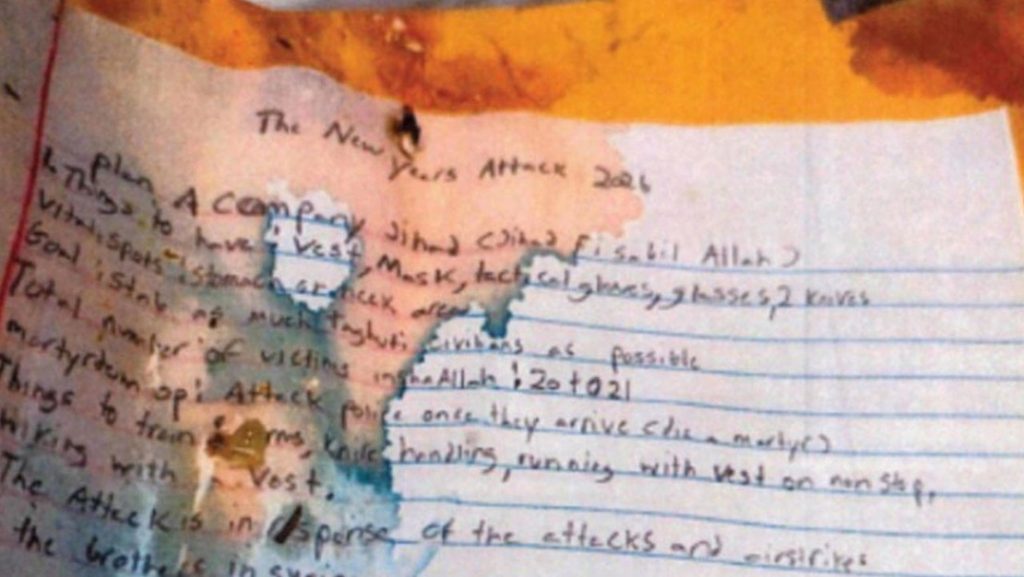 The New Years Attack 2026
plan A Company Jihad (Jihad fi sabil Allah)
Things to have: Vest, Mask, tactical gloves, glasses, 2 knives
Vital spots: stomach or neck area
Goal: stab as much taghuti civilians as possible
Total number of victims inshaAllah: 20 to 21
martyrdom op: Attack police once they arrive (die a martyr)
Things to train: knife handling, running with vest on non stop,
hiking with vest.
The Attack is in of the attacks and airstrikes
the brothers in